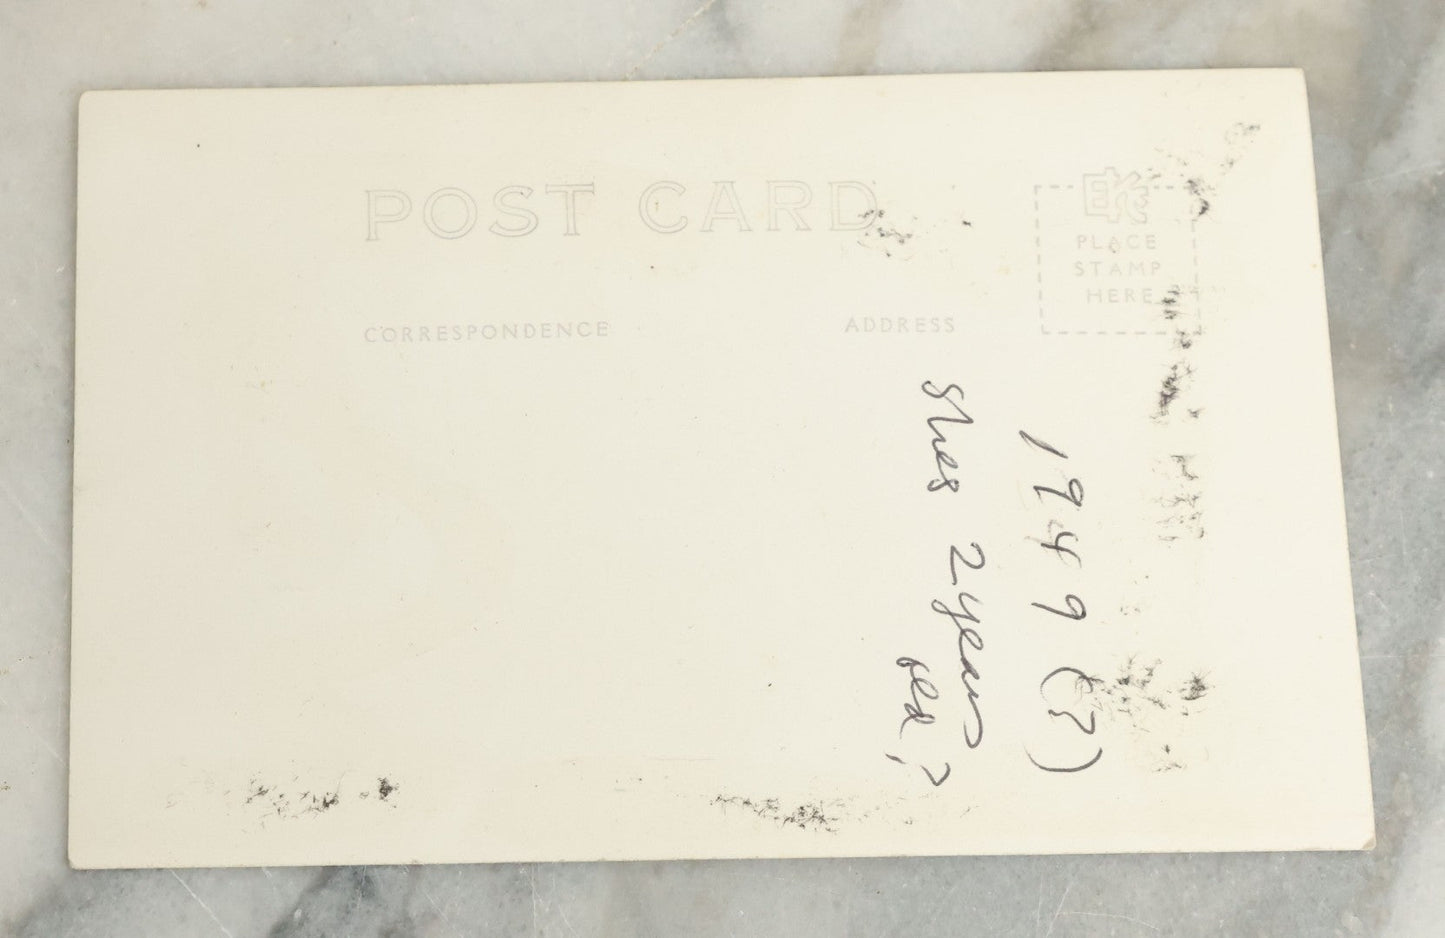 POST CARD
EKC
PLACE
STAMP
HERE
CORRESPONDENCE
ADDRESS
1949 (?)
shes 2 years
old?